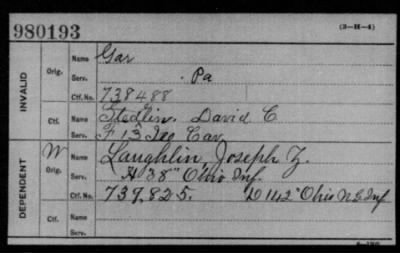 980193
(3-H-4)
INVALID
Orig.
Name
Gar
Serv.
. Pa
Ctf. No.
738488
Ctf.
Name
Stedlin. David C.
Serv.
F 13 Cav
DEPENDENT
W
Orig.
Name
Laughlin, Joseph Z.
Serv.
H "38" Ohio Inf.
Ctf. No.
739,825. D 142" Ohio N.G. Inf
Ctf.
Name
Serv.